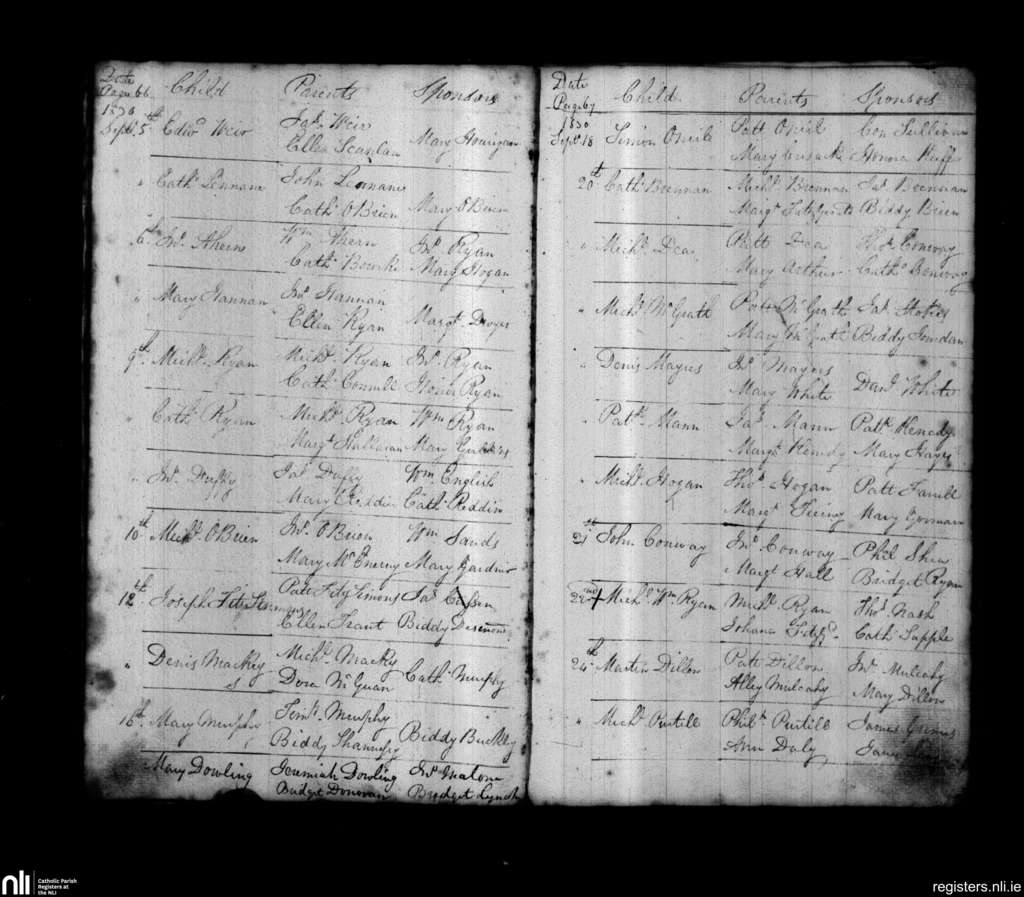 Date Child Parents Sponsors
Page 66
1830
Septr. 5th Edwd. Weir Jas. Weir
Ellen Scanlan Mary Hourigan
" Cath. Lennane John Lennane
Cath. OBrien Mary OBrien
6th Jno. Ahern Wm. Ahern Jno. Ryan
Cath. Bourke Mary Hogan
" Mary Hannan Jno. Hannan
Ellen Ryan Margt. Dwyer
9th Michl. Ryan Michl. Ryan Jno. Ryan
Cath. Connell Honor Ryan
" Cath. Ryan Michl. Ryan Wm. Ryan
Margt. Hallinan Mary
" Jno. Duffy Jas. Duffy Wm. English
Mary Reddin Cath. Reddin
10th Michl. OBrien Jno. OBrien Wm. Sands
Mary McEnerny Mary Gardner
12th Joseph Fitz Simons Patt Fitz Simons Jas.
Ellen Trant Biddy
" Denis Mackey Michl. Macky
Dora McGuan Cath. Murphy
16th Mary Murphy Timy. Murphy
Biddy Shannessy Biddy Buckley
" Mary Dowling Jeremiah Dowling Jno. Malone
Bridget Donovan Bridget Lynch
Date Child Parents Sponsors
Page 67
1830
Septr. 18 Simon Oneile Patt Oneil Con Sullivan
Mary Cusack Honora
20th Cath. Brennan Michl. Brennan Jas. Brennan
Margt. Fitzgerald Biddy Brien
" Michl. Dea Patt Dea Thos. Conway
Mary Arthur Cath. Conway
" Michl. McGrath Patt McGrath Jas.
Mary McGrath Biddy
" Denis Magner Jno. Magner
Mary White Danl. White
" Patk. Mann Jas. Mann Patk. Kenedy
Margt. Kenedy Mary Hayes
" Michl. Hogan Thos. Hogan Patt Farrell
Margt. Mary Gorman
21st John Conway Jno. Conway Phil Shea
Margt. Hall Bridget Ryan
22nd Michl. Wm Ryan Michl. Ryan Thos. Nash
Johana Fitzgd. Cath. Supple
24th Martin Dillon Patt Dillon Jno. Mulcahy
Alley Mulcahy Mary Dillon
" Michl. Purtill Phil. Purtill James
Ann Daly
nli Catholic Parish
Registers at
the NLI
registers.nli.ie